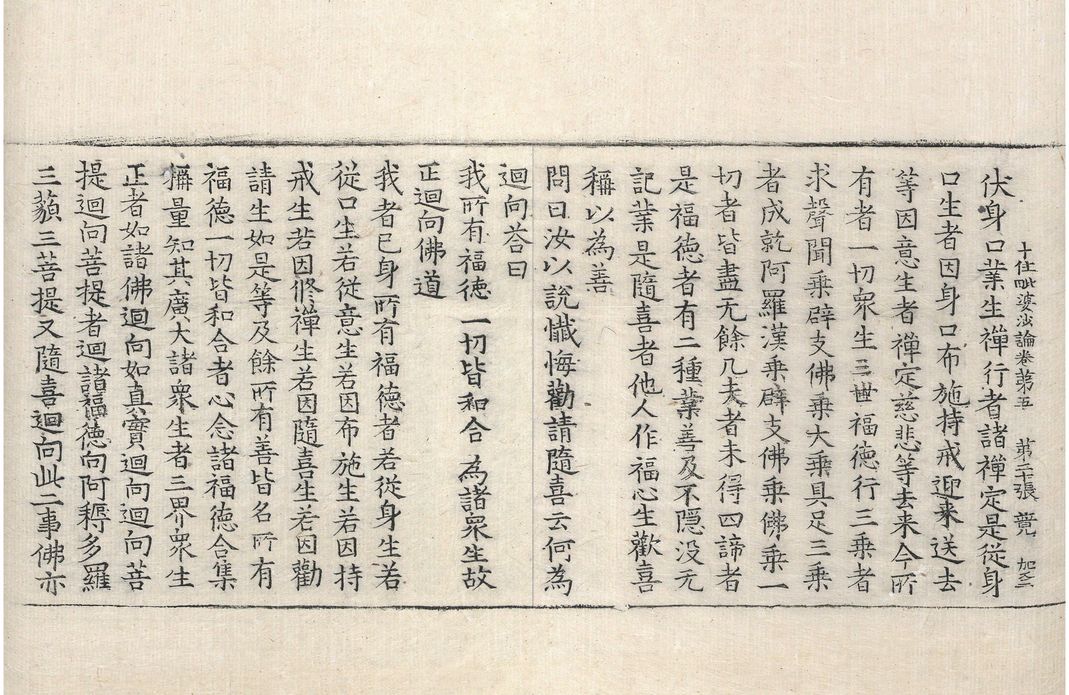 十住毗婆沙論卷第五 第二十張 竟
伏身口業生禪行者諸禪定是從身
口生者因身口布施持戒迎来送去
等因意生者禪定慈悲等去来今所
有者一切衆生三世福德行三乗者
求聲聞乗辟支佛乗大乗具足三乗
者成就阿羅漢乗辟支佛乗佛乗一
切者皆盡无餘凡夫者未得四諦者
是福德者有二種業善及不隱没无
記業是隨喜者他人作福心生歡喜
稱以為善
問曰汝以說懺悔勸請隨喜云何為
迴向荅曰
我所有福德 一切皆和合 為諸衆生故
正迴向佛道
我者已身所有福德者若從身生若
從口生若從意生若因布施生若因持
戒生若因修禪生若因隨喜生若因勸
請生如是等及餘所有善皆名所有
福德一切皆和合者心念諸福德合集
稱量知其廣大諸衆生者三界衆生
正者如諸佛迴向如真實迴向迴向菩
提迴向菩提者迴諸福德向阿耨多羅
三藐三菩提又隨喜迴向此二事佛亦